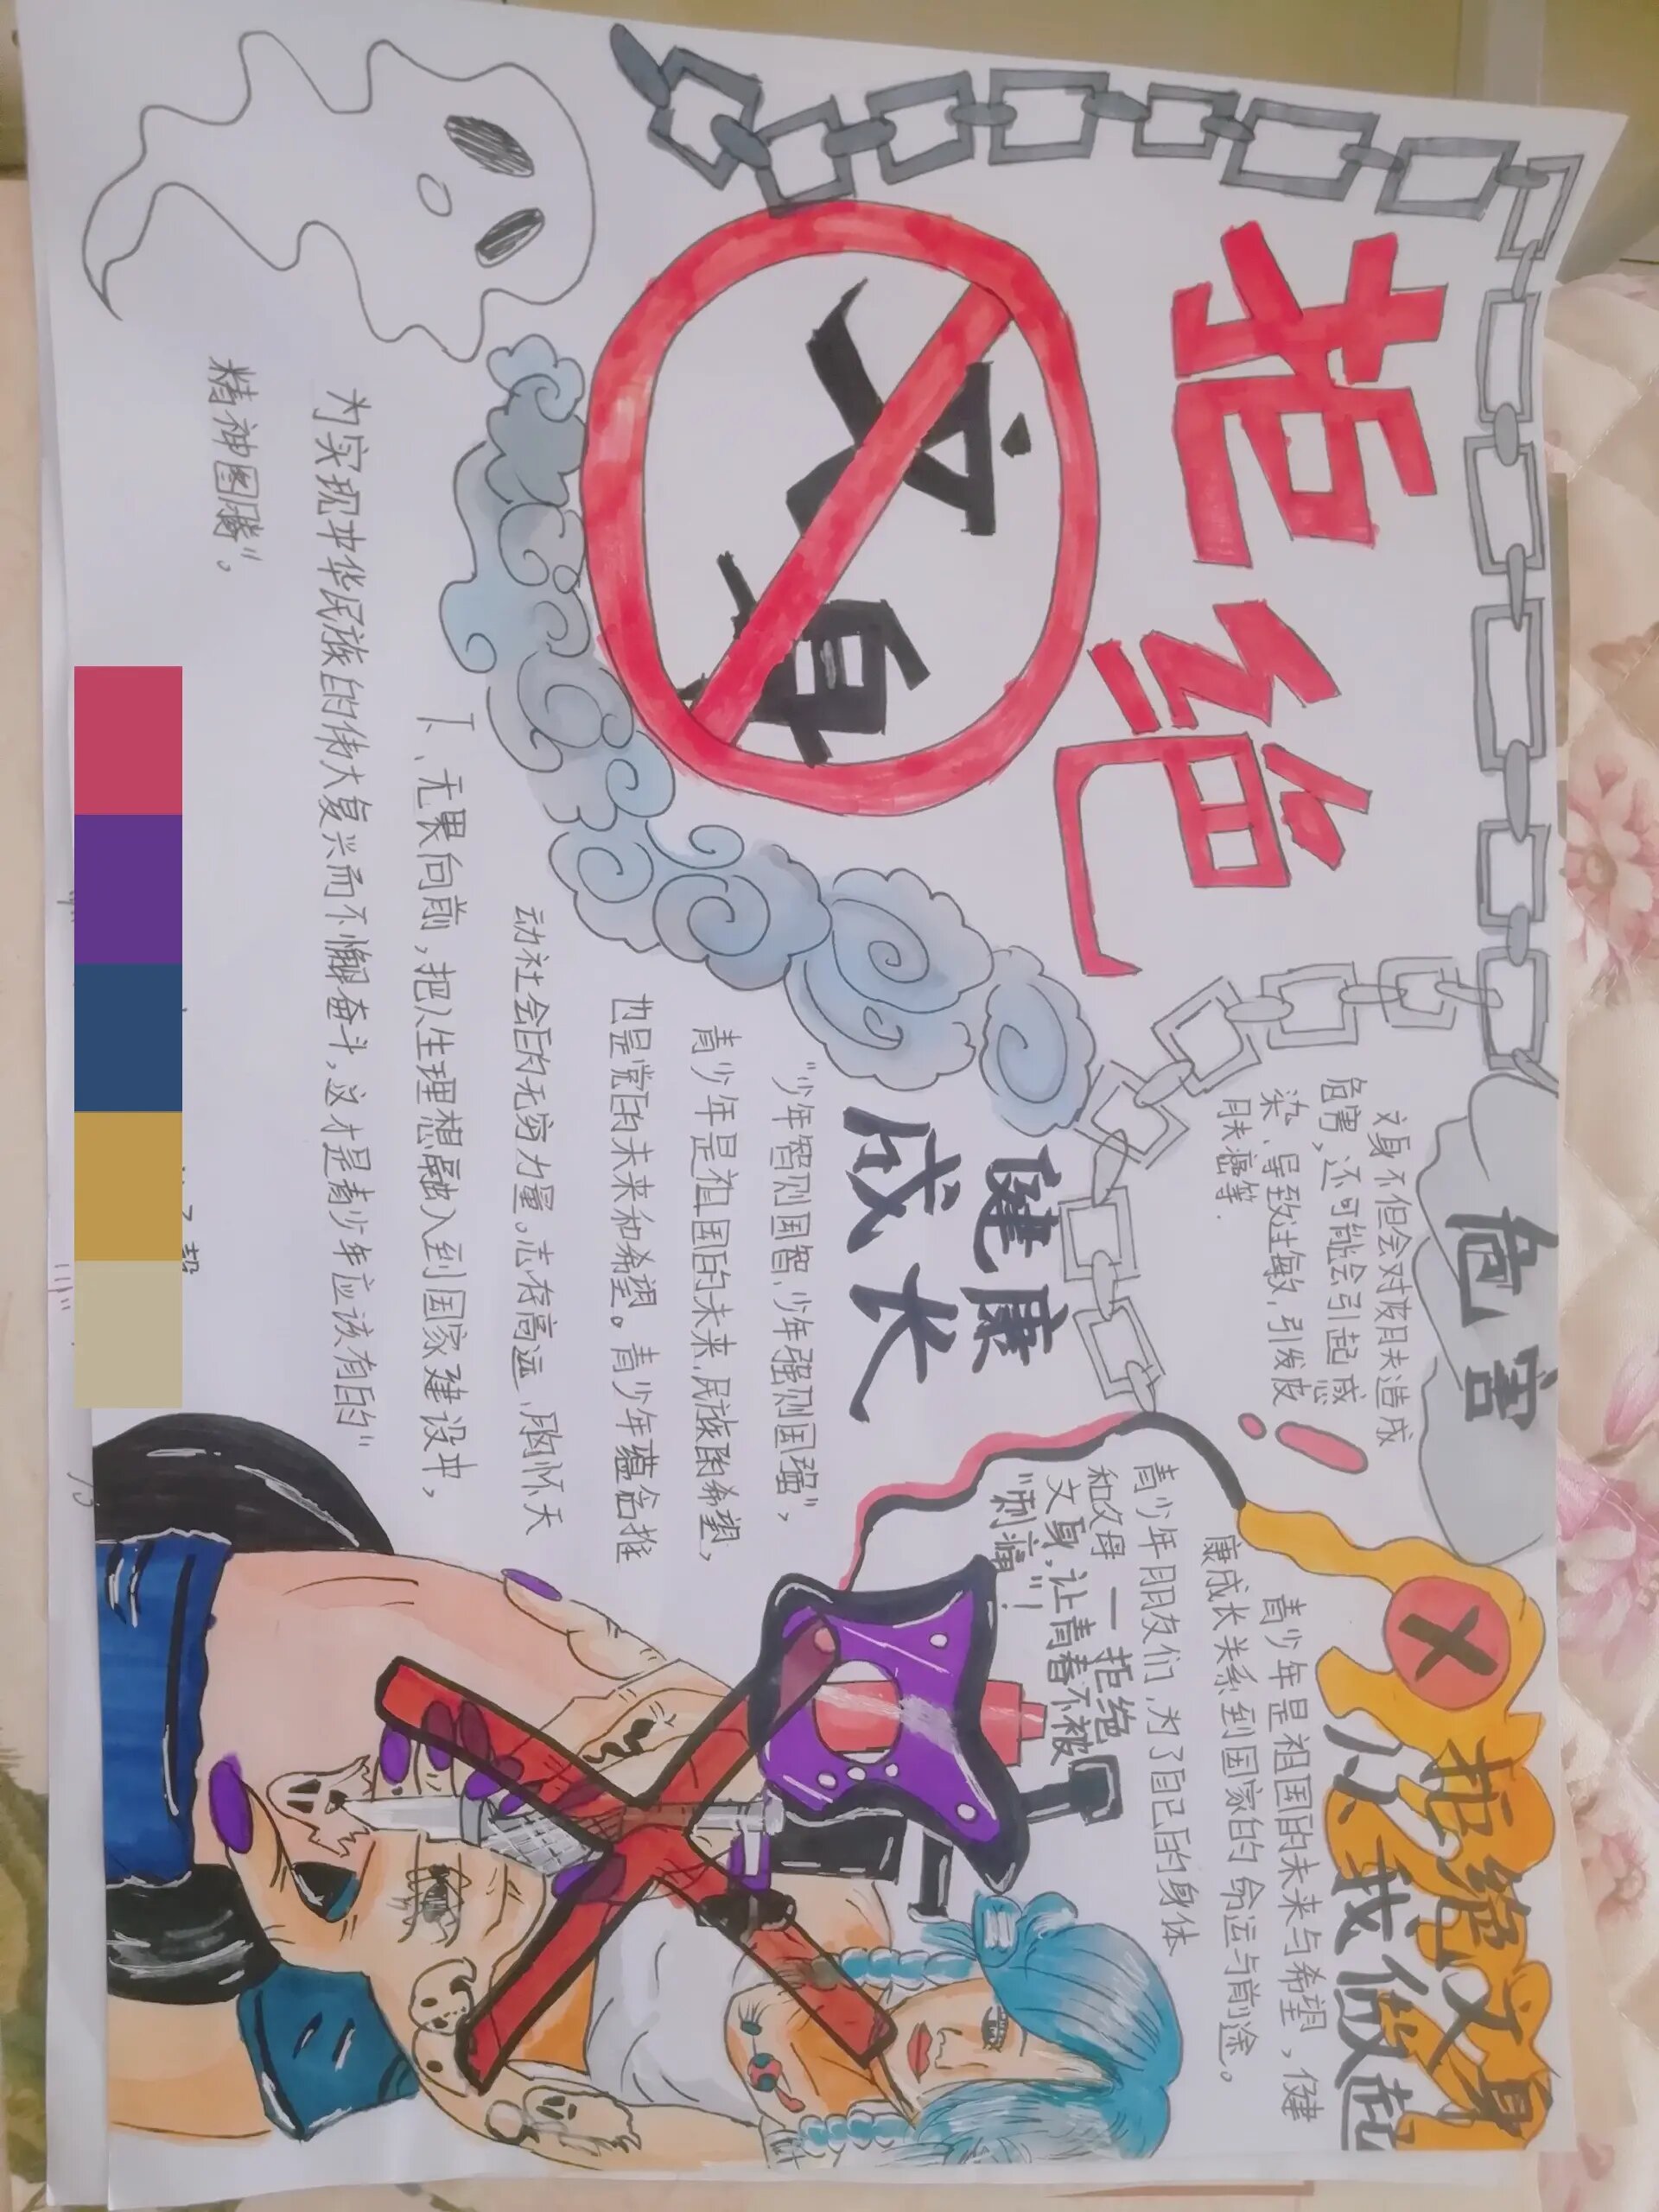 拒绝
文身
危害
文身不但会对皮肤造成
危害，还可能会引起感
染、导致过敏，引发皮
肤癌等.
！
拒绝文身
从我做起
青少年是祖国的未来与希望，健
康成长关系到国家的命运与前途。
青少年朋友们，为了自己的身体
和父母——拒绝
文身，让青春不被
“刺痛”！
健康
成长
“少年智则国智，少年强则国强”，
青少年是祖国的未来，民族的希望，
也是党的未来和希望。青少年蕴含推
动社会的无穷力量。志存高远、胸怀天
下、无畏向前，把人生理想融入到国家建设中，
为实现中华民族的伟大复兴而不懈奋斗，这才是青少年应该有的“
精神图腾”。